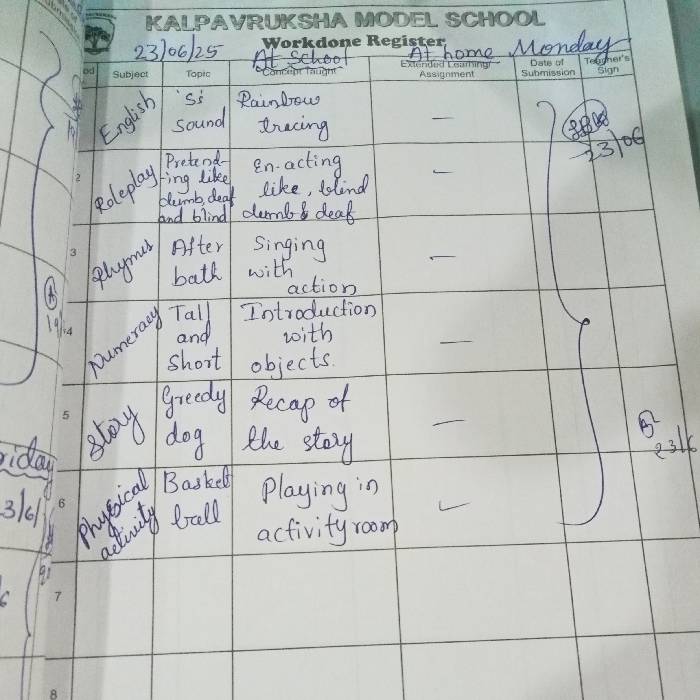 KALPAVRUKSHA MODEL SCHOOL
Workdone Register
23/06/25 At School At home Monday
Subject Topic Concept Taught Extended Learning/ Assignment Date of Submission Teacher's Sign
English 'Ss' Sound Rainbow tracing —
23/06
2 Roleplay Pretend-ing like dumb, deaf and blind En-acting like, blind dumb & deaf —
3 Rhymes After bath Singing with action —
4 Numeracy Tall and Short Introduction with objects. —
5 Story Greedy dog Recap of the story —
23/6
6 Physical activity Basket ball Playing in activity room
7
8
riday
3/6/